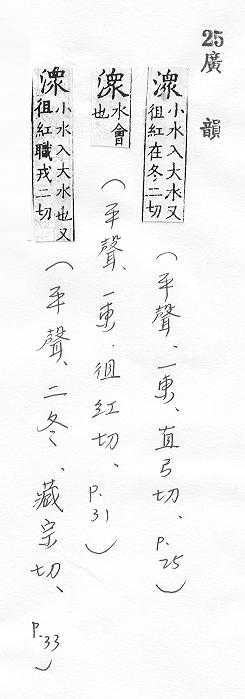 25廣韻
潨小水入大水又徂紅在冬二切（平聲、一東、直弓切、p.25）
潨水會也（平聲、一東、徂紅切、p.31）
潨小水入大水也又徂紅職戎二切（平聲、二冬、藏宗切、p.33）